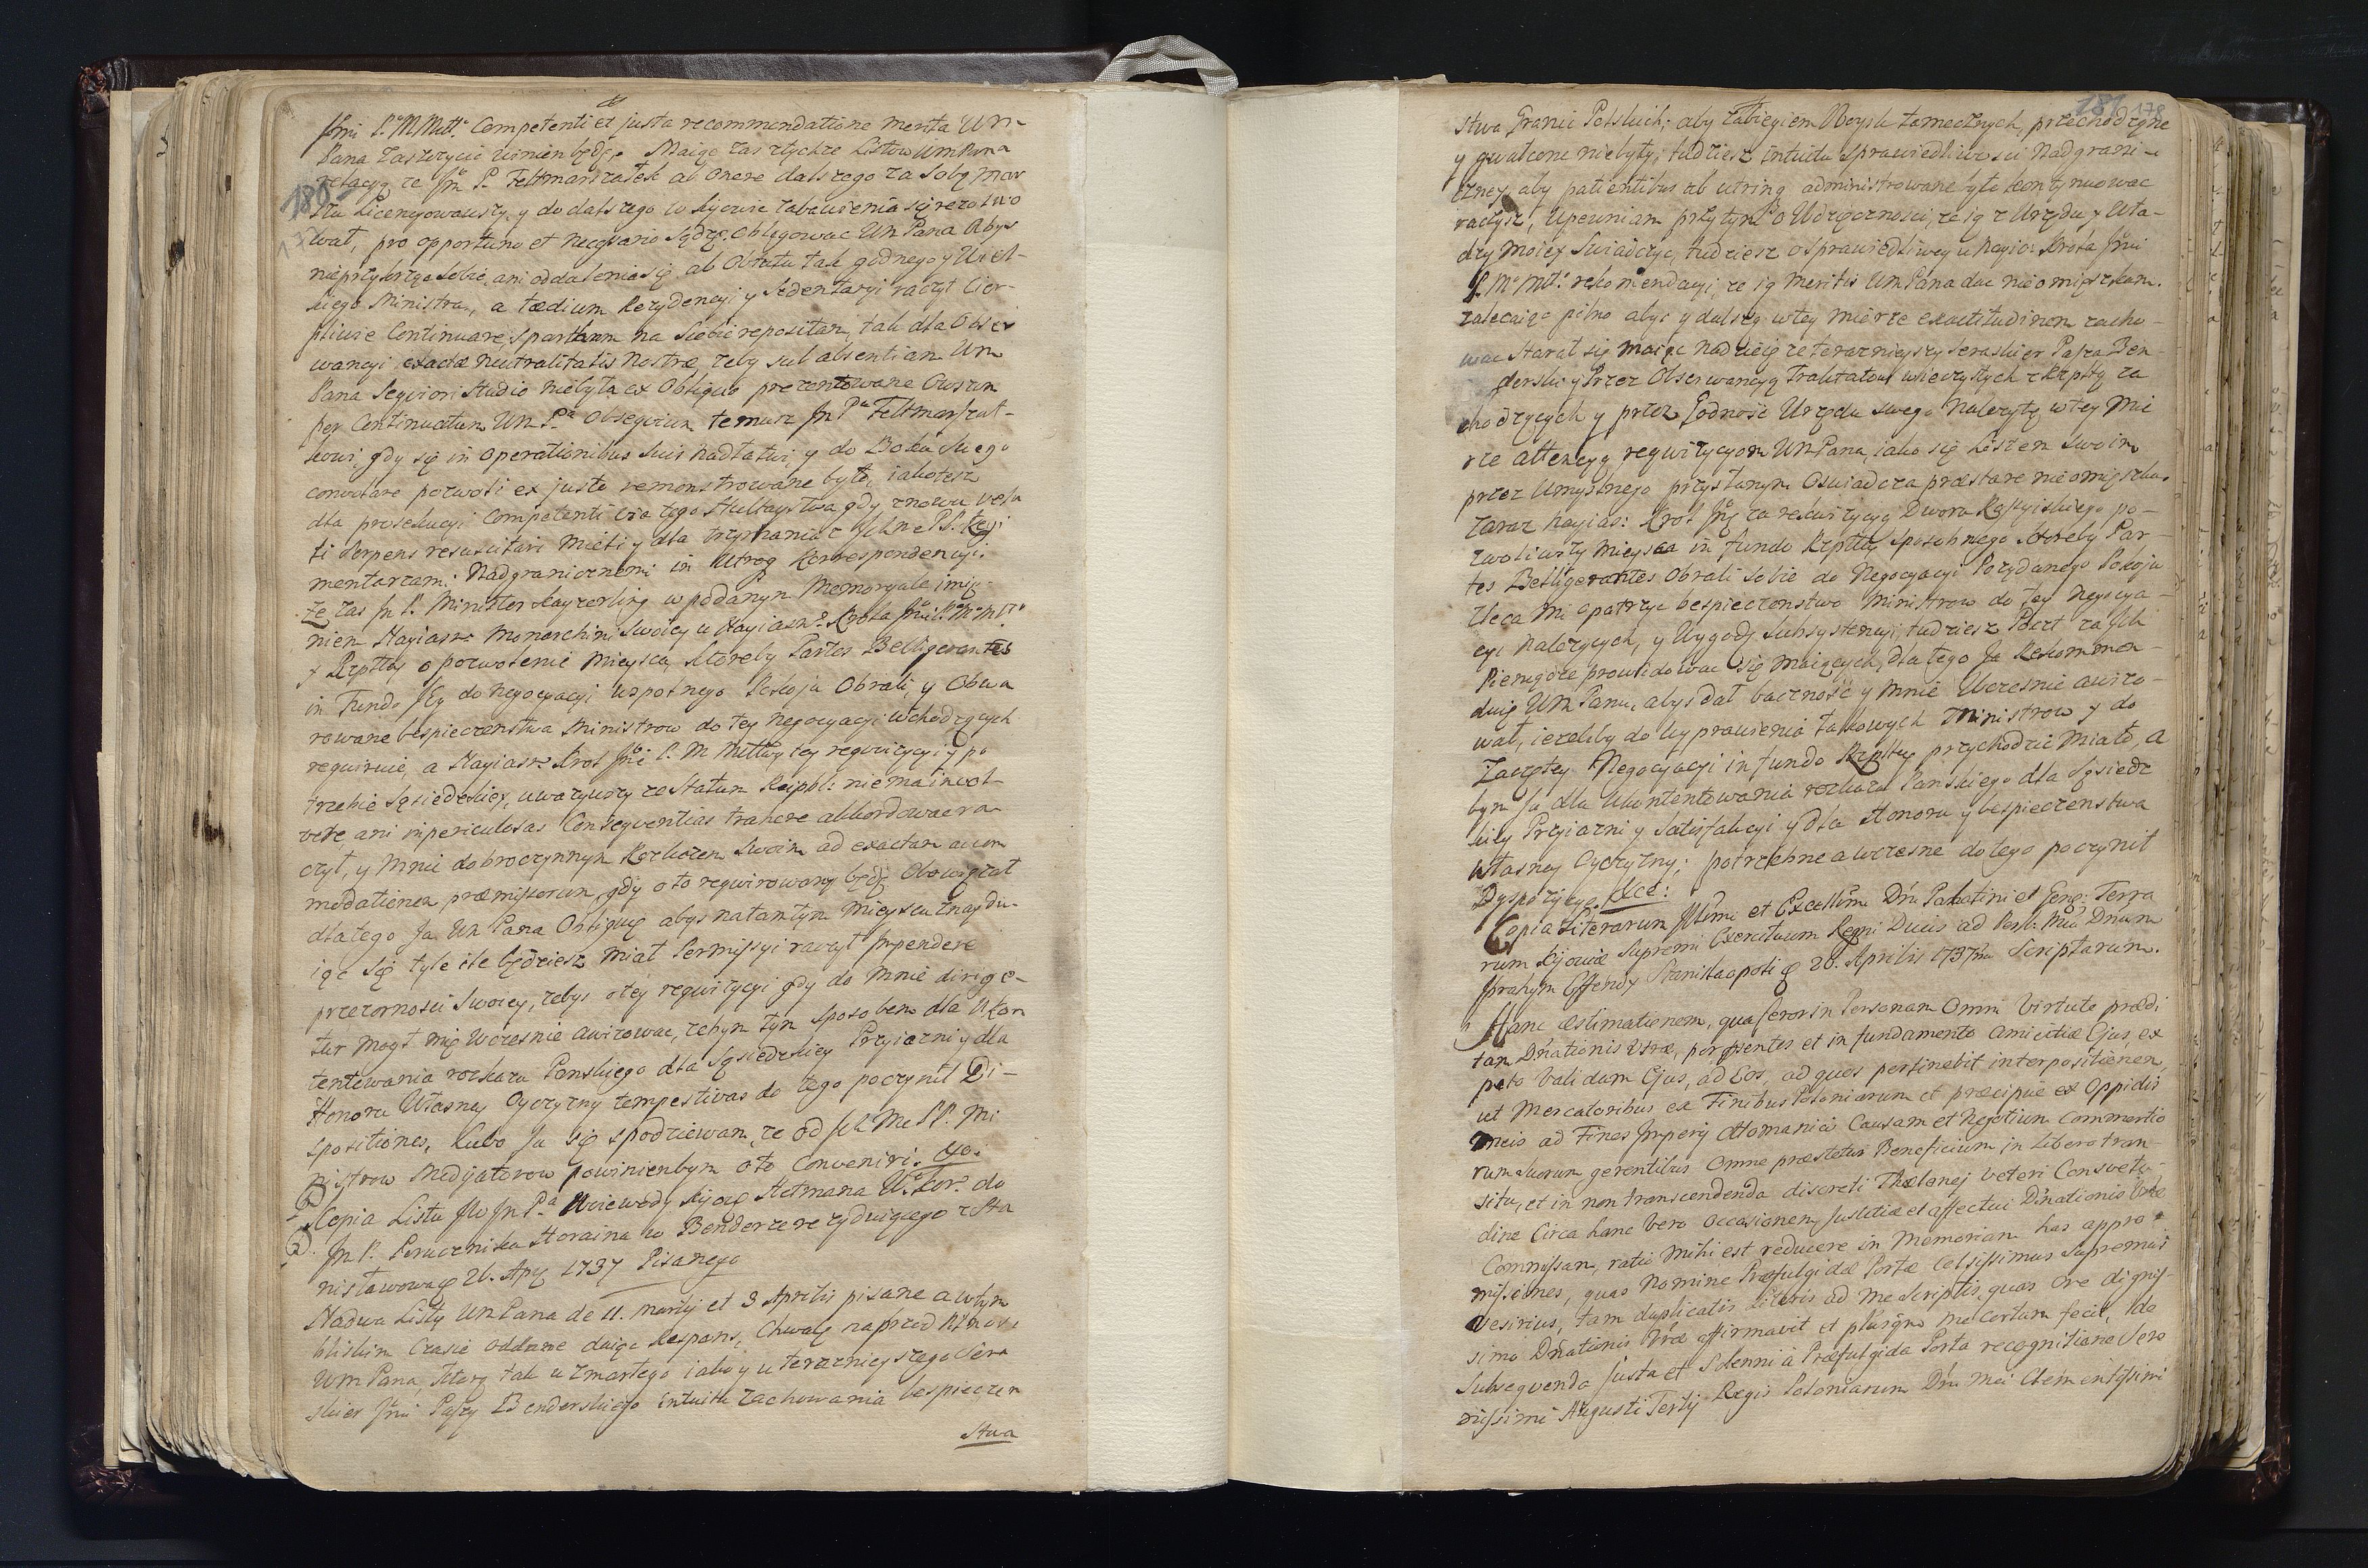 Jmi P. M Mttł. Competenti et justa recommendatione merita Um
Pana zaszczycić winien będę. Maiąc zas ztychze Listow Um Pana
relacyą, ze Jm P. Feltmarszałek ab onere dalszego za sobą mar
szu Licencyowawszy, y do dalszego w Kijowie zabawienia się rezolwo
wał, pro opportuno et necessario sądzę obligowac Um Pana Abys
nieprzykrząc sobie, ani oddalenia się ab Obtutu tak godnego y Wiel-
kiego Ministra, a tædium Rezydencyi y Sedentaryi raczył Cier-
pliwie Continuare, Spartam na Siebie repositam, tak dla Obser
wancyi exactæ neutralitatis nostræ, zeby sub absentiam Um
Pana Segviori Studio niebyła ex Obliquo prezentowane Owszem
per Continuatum Um Pa Obseqvium temuz Jm Pu Feltmarszał-
kowi, gdy się in operationibus suis nadłatwi, y do Boku swego
convolare pozwoli ex justo remonstrowane było, iakotesz
dla prosekucyi Competenti via tego Hultaystwa gdy znowu velu
ti Serpens resuscitari mieli y dla trzymania z Ichme PP. Regi
mentarzami Nadgranicznemi in Utroq Korrespondencyi.
Ze zas Jm P. Minister Kayzerling w podanym Memoryale imię-
niem Nayiasn: Monarchini Swoiey u Nayiasn: Krola Jmi P. M. Mttł.
y Rzpttey o pozwolenie mieysca, ktoreby Partes Belligerantes
in Fundo Jey do negocyacyi wspolnego Pokoju Obrali, y Obwa
rowane bespieczenstwa Ministrow do tey negocyacyi wchodzących
requiruie, a Nayiasn: Krol Jmć P. M Mttwy tey requizycyi y po
trzebie Sąsiedzkiey, uwazywszy ze Statum Reipbl: niema invol-
vere ani in periculosas Conseqventias trahere akkordowac ra
czył, y mnie dobroczynnym Rozkazem Swoim ad exactam accom
modationem præmissorum, gdy o to requirowany będę Obowiązał
dlatego Ja Um Pana Obliguię abys na tamtym mieyscu znaydu-
iąc się tyle ile będziesz miał Permissyi raczył Impendere
przezornosci Swoiey, zebys o tey requizycyi gdy do mnie dirige-
tur mogł mię wczesnie awizowac, zebym tym sposobem dla Ukon
tentowania rozkazu Panskiego dla Sąsiedzkiey Przyiazni y dla
Honoru Własney Oyczyzny tempestivas do tego poczynił Di-
spositiones, Lubo Ja się spodziewam, ze od Ich Me PP. Mi
nistrow Medyatorow powinienbym o to Conveniri. &c:
Copia Listu JW Jm Pa Woiewody Kijog Hetmana W. Kor. do
Jm P. Porucznika Horaina w Benderze rezyduiącego z Sta
nisławowa 26. Apr 1737 Pisanego
Na dwa Listy Um Pana de 11. martij et 3 Aprilis pisane a wtym
bliskim czasie oddane daiąc Respons, Chwalę naprzod
Um Pana, ktorą tak u zmarłego iako y u teraznieyszego Sera
skier Jmi Paszy Benderskiego intuitu zachowania bespieczen
stwa
180
181 178
stwa Granic Polskich; aby zabiegiem Woysk tamecznych, przechodzone
y gwałcone niebyły, tudziesz intuitu Sprawiedliwosci Nadgrani-
czney aby patientibus ab utrinq administrowane było kontynuowac
raczysz, Upewniam przytym o Wdzięcznosci, ze ią z Urzędu y Wła-
dzy moiey Swiadczyc, tudziesz o sprawiedliwey u Nayia: Krola Jmi
P. M. Mttł: rekomendacyi, ze ią meritis Um Pana dac nieomięszkam.
zalecaiąc pilno abyc y dalszą w tey mierze exactitudinem zacho-
wac starał się maiąc nadzieię ze teraznieyszy Seraskier Pasza Ben
derski y Przez Obserwancyą Traktatow wieczystych z Rzptą za
chodzących y przez Godność Urzędu swego Nalezytą w tey mie
rze attencyą requizycyom Um Pana, iako się Listem swoim
przez Umyslnego przysłanym Oswiadcza præstare nieomięszka.
Zaraz Nayias: Krol Jmć za rekwizycyą Dworu Rossyiskiego po-
zwoliwszy mieysca in fundo Rzpttey sposobnego ktoreby Par-
tes Belligerantes Obrali sobie do Negocyacyi Pozydanego Pokoju
zleca mi Opatrzyc bespieczenstwo Ministrow do tey Negocya-
cyi nalezących, y Wygody Subsystencyi, tudziesz Poczt za Ich
Pieniądze prowidowac się maiących, dla tego Ja Rekommen-
duię Um Panu, abys dał baczność y mnie Wczesnie awizo-
wał, iezeliby do Wyprawienia takowych Ministrow y do
Zaczętey Negocyacyi in fundo Rzpttey przychodzic miało, A
bym Ja dla Ukontentowania rozkazu Panskiego dla Sąsiedz
kiey Przyiazni y Satisfakcyi y dla Honoru y bespieczenstwa
własney Oyczyzny; potrzebne a wczesne do tego poczynił
Dyspozycye. &ce:
Copia Literarum Illmi et Excellmi Dni Palatini et Gener. Terra
rum Kijoviæ Supremi Exercituum Regni Ducis ad Perl: Mm Dnum
Jbrahym Effendy Stanislaopoli 26. Aprilis 1737mo Scriptarum.
Hanc æstimationem, qua feror in Personam Omni virtute prædi
tam Dnationis Vræ, per psentes et in fundamento amicitiæ Ejus, ex
peto validam Ejus, ad Eos, ad quos pertinebit interpositionem,
ut Mercatoribus ex Finibus Poloniarum et præcipue ex Oppidis
meis ad Fines Imperij Ottomanici Causam et Negotium Commercio
rum suorum gerentibus Omne præstetur Beneficium in Libero tran-
situ, et in non transcendenda discreti Thelonej veteri Consvetu-
dine Circa hanc vero Occasionem Justitiæ et affectui Dnationis Vræ
Commissam, ratio mihi est reducere in Memoriam has appro-
missiones, quas Nomine Præfulgidæ Portæ Celsissimus Supremus
Vesirius, tam duplicatis Literis ad me Scriptis, quas Ore dignis-
simo Dnationis Vræ affirmavit et plusqne me certum fecit, de
Subseqvenda justa et Solenni à Præfulgida Porta recognitione Sere
nissimi Augusti Tertij Regis Poloniarum Dni Mei Clementissimi